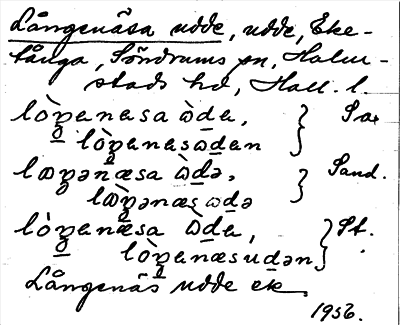 Långenäsa udde, udde, Eke-
tånga, Söndrums sn, Halm-
stads hd, Hall. l.
lòŋenasa ùde, } Sa.
lòŋenasuden
læŋənæsa ùdə, } Sand.
læŋənæsudə
lòŋenæsa ùde, } St.
lòŋenæsudən
Långenäs udde ek.
1956.